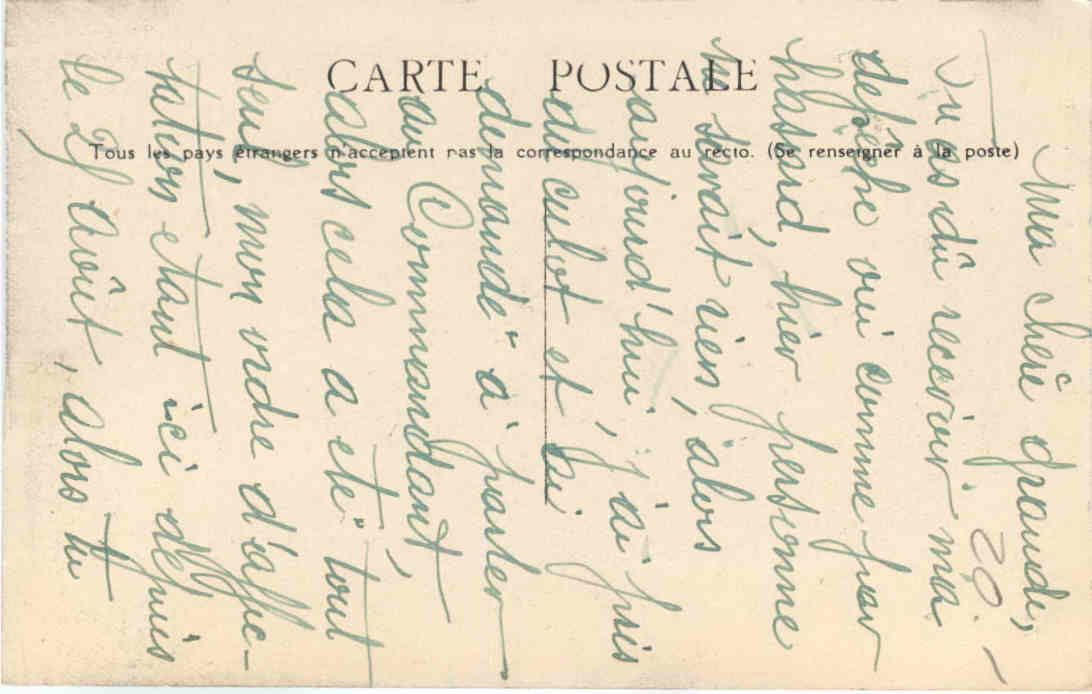 CARTE POSTALE
Tous les pays étrangers n'acceptent pas la correspondance au recto. (Se renseigner à la poste)
Ma chère grande,
20.-
Tu as dû recevoir ma
dépêche oui comme par
hasard, hier personne
ne savait rien, alors
aujourd'hui j'ai pris
du culot et j'ai
demandé à parler
au Commandant,
alors cela a été tout
seul, mon ordre d'affec-
tation étant ici depuis
le 29 août, alors tu